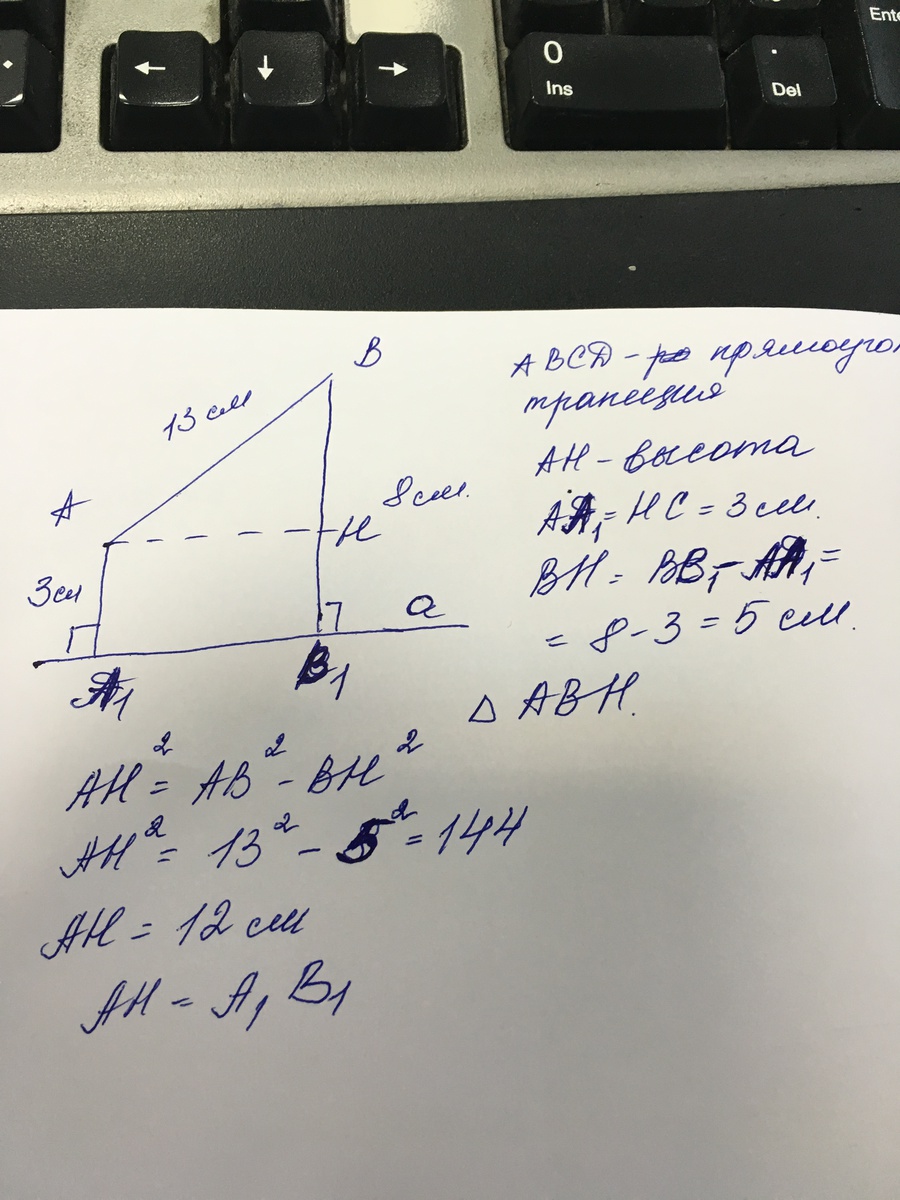 Ente
0
Ins
.
Del
←
↓
→
B
13 см
A
8 см.
H
3 см
a
A₁
B₁
ABCD - прямоугол
трапеция
AH - высота
AA₁ = HC = 3 см.
BH = BB₁ - AA₁ =
= 8 - 3 = 5 см.
△ ABH.
AH² = AB² - BH²
AH² = 13² - 5² = 144
AH = 12 см
AH = A₁ B₁